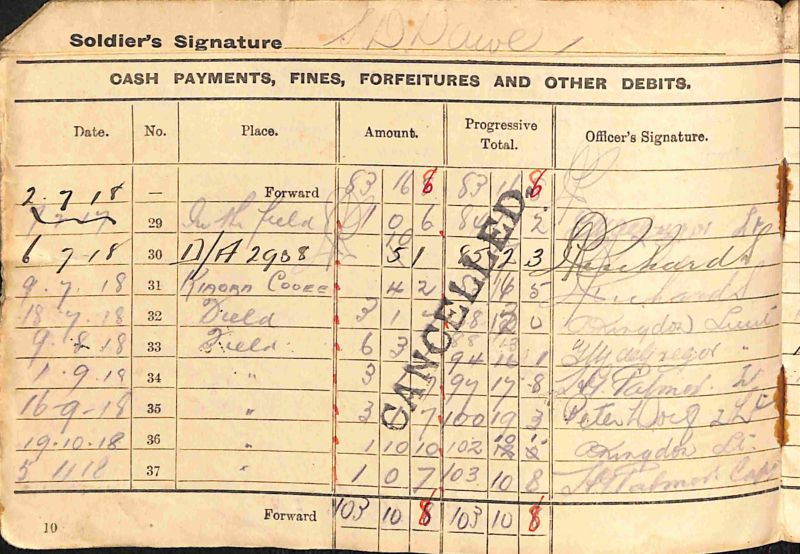 Soldier's Signature S D Dawe
CASH PAYMENTS, FINES, FORFEITURES AND OTHER DEBITS.
Date. No. Place. Amount. Progressive Total. Officer's Signature.
2 . 7 18 — Forward 83 16 8 83 11 8
29 In the field 1 0 6 2
6 7 18 30 D/A 2908 5 1 85 2 3
9 . 7 . 18 31 KIAORA COOEE 4 2 16 5
18 . 7 . 18 32 Field 3 1 0 Kingdon Lieut
9 . 8 . 18 33 Field 6 3 94 16 1 "
1 . 9 . 18 34 " 3 97 17 8 Palmer Lt
16-9-18 35 " 3 7 100 19 3 Peter 2 Lt
19.10.18 36 " 1 10 10 102 10 Kingdon Lt.
5 11 18 37 " 1 0 7 103 10 8 Palmer Capt
10 Forward 103 10 8 103 10 8
CANCELLED.